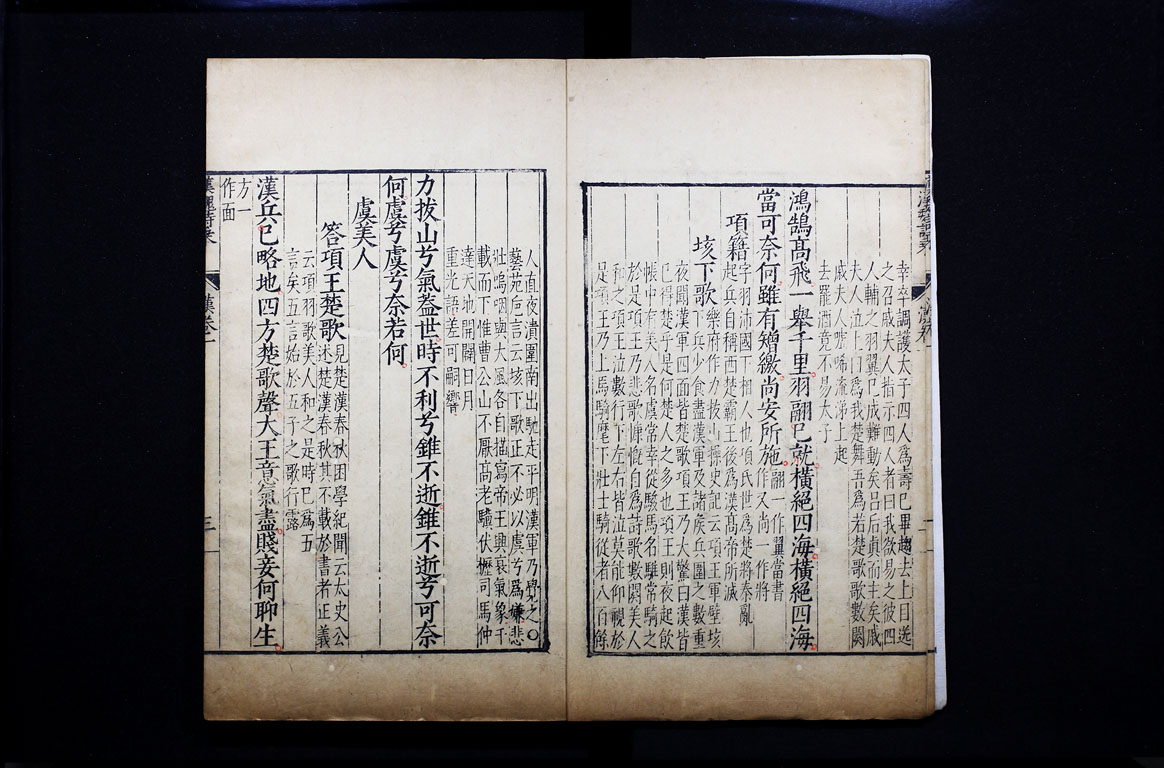 幸卒調護太子四人爲壽已畢趨去上目送
之召戚夫人指示四人者曰我欲易之彼四
人輔之羽翼已成難動矣吕后真而主矣戚
夫人泣上曰爲我楚舞吾爲若楚歌歌數闋
戚夫人噓唏流涕上起
去罷酒竟不易太子
鴻鵠高飛一舉千里羽翮已就橫絕四海橫絕四海
當可奈何雖有矰繳尚安所施翮一作翼當書
作又尚一作將
項籍字羽沛國下相人也項氏世爲楚將秦亂
起兵自稱西楚霸王後爲漢高帝所滅
垓下歌樂府作力拔山操史記云項王軍壁垓
下兵少食盡漢軍及諸矦兵圍之數重
夜聞漢軍四面皆楚歌項王乃大驚曰漢皆
已得楚乎是何楚人之多也項王則夜起飲
帳中有美人名虞常幸從駿馬名騅常騎之
於是項王乃悲歌慷慨自爲詩歌數闋美人
和之項王泣數行下左右皆泣莫能仰視於
是項王乃上馬騎麾下壯士騎從者八百餘
人直夜潰圍南出馳走平明漢軍乃覺之○
藝苑卮言云垓下歌正不必以虞兮爲嫌悲
壯嗚咽與大風各自描寫帝王興衰氣象千
載而下惟曹公山不厭高老驥伏櫪司馬仲
達天地開闢日月
重光語差可嗣響
力拔山兮氣蓋世時不利兮騅不逝騅不逝兮可奈
何虞兮虞兮奈若何
虞美人
答項王楚歌見楚漢春秋困學紀聞云太史公
述楚漢春秋其不載於書者正義
云項羽歌美人和之是時已爲五
言矣五言始於五子之歌行露
漢兵已略地四方楚歌聲大王意氣盡賤妾何聊生
方一
作面
漢卷一
三